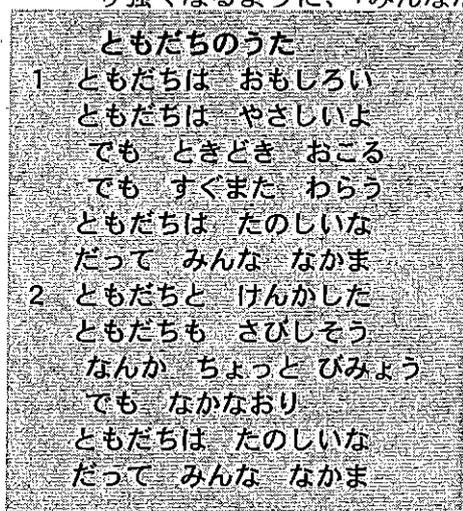 ともだちのうた
1 ともだちは おもしろい
ともだちは やさしいよ
でも ときどき おこる
でも すぐまた わらう
ともだちは たのしいな
だって みんな なかま
2 ともだちと けんかした
ともだちも さびしそう
なんか ちょっと びみょう
でも なかなおり
ともだちは たのしいな
だって みんな なかま